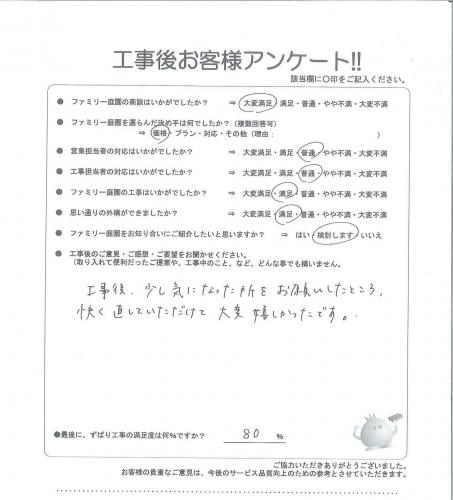 工事後お客様アンケート!!
該当欄に○印をご記入ください。
● ファミリー庭園の商談はいかがでしたか? ⇒ 大変満足・満足・普通・やや不満・大変不満
● ファミリー庭園を選らんだ決め手は何でしたか?(複数回答可)
⇒ 価格・プラン・対応・その他(理由: )
● 営業担当者の対応はいかがでしたか? ⇒ 大変満足・満足・普通・やや不満・大変不満
● 工事担当者の対応はいかがでしたか? ⇒ 大変満足・満足・普通・やや不満・大変不満
● ファミリー庭園の工事はいかがでしたか? ⇒ 大変満足・満足・普通・やや不満・大変不満
● 思い通りの外構ができましたか? ⇒ 大変満足・満足・普通・やや不満・大変不満
● ファミリー庭園をお知り合いにご紹介したいと思いますか? ⇒ はい・検討します・いいえ
● 工事後のご意見・ご感想・ご要望をお聞かせください。
(取り入れて便利だったご提案や、工事中のこと、など、どんな事でも構いません。
工事後、少し気になった所をお願いしたところ、
快く直していただけて大変嬉しかったです。
●最後に、ずばり工事の満足度は何%ですか? 80 %
ご協力いただきありがとうございました。
お客様の貴重なご意見は、今後のサービス品質向上のための参考とさせていただきます。